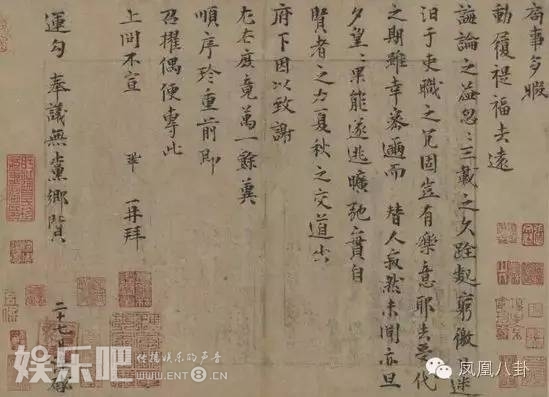 局事多暇
動履禔福去遠
誨論之益忽忽三載之久跧處窮徼日迷
汩于吏職之冗固豈有樂意耶去受代
之期雖幸密邇而替人寂然未聞亦旦
夕望〻果能遂逃曠弛實自
賢者之力夏秋之交道出
府下因以致謝
左右庶竟萬一餘冀
順序珍重前即
召擢偶便專此
上問不宣 鞏再拜
運勾奉議無黨鄉賢
二十七日
娱乐吧
传播娱乐的声音
WWW.ENT8.CN
凤凰八卦